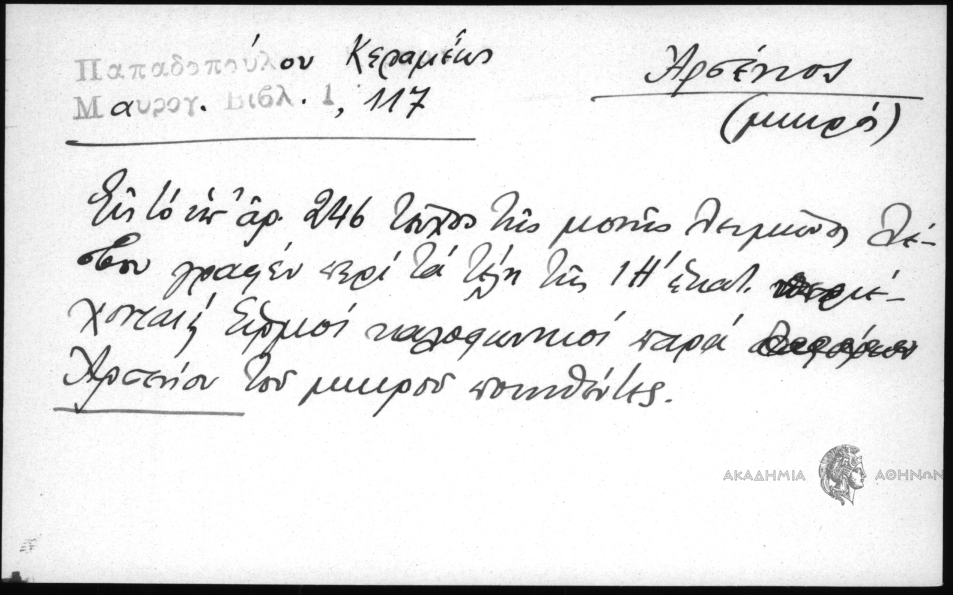 Παπαδοπούλου Κεραμέως
Μαυρογ. Βιβλ. 1, 117
Ἀρσένιος
(μικρός)
Εἰς τό ὑπ' ἀρ. 246 τεῦχος τῆς μονῆς Λειμῶνος Λέ-
σβου γραφέν περί τά τέλη τῆς ΙΗ' ἑκατ. περιέ-
χονται Εἱρμοί καλοφωνικοί παρά
Ἀρσενίου τοῦ μικροῦ ποιηθέντες.
ΑΚΑΔΗΜΙΑ ΑΘΗΝΩΝ